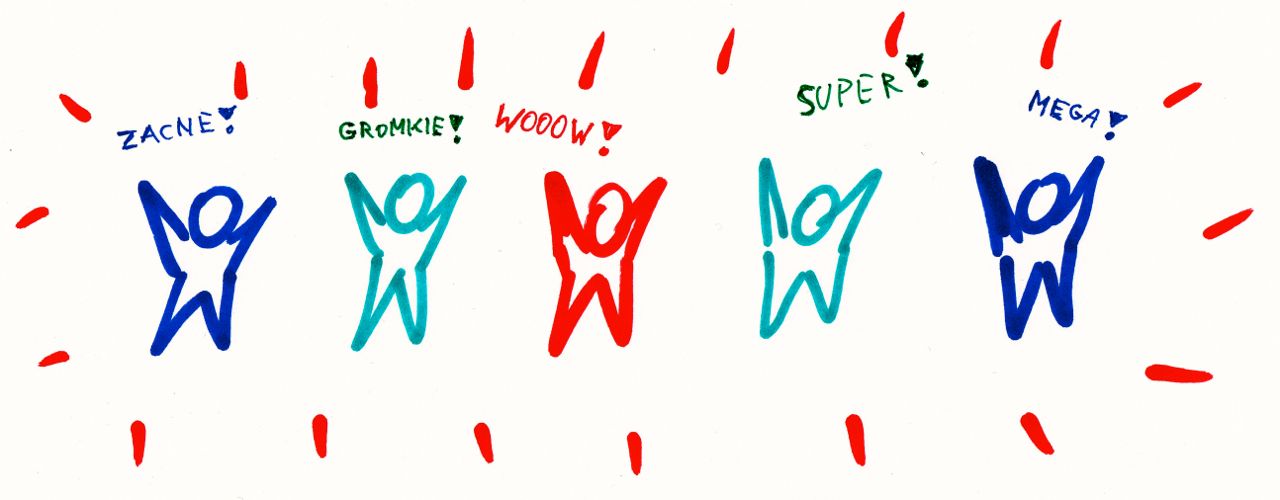 ZACNE!
GROMKIE!
WOOOW!
SUPER!
MEGA!